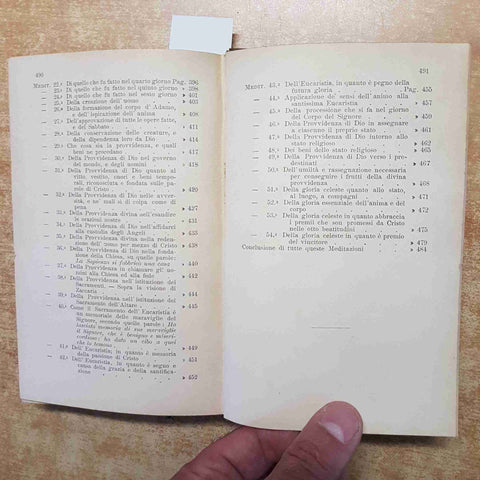 490
MEDIT. 22.ª Di quello che fu fatto nel quarto giorno Pag. 396
— 23.ª Di quello che fu fatto nel quinto giorno » 398
— 24.ª Di quello che fu fatto nel sesto giorno » 401
— 25.ª Della creazione dell'uomo » 403
— 26.ª Della formazione del corpo d'Adamo,
e dell'ispirazione dell'anima » 408
— 27.ª Dell'approvazione di tutte le opere fatte,
e del Sabbato » 411
— 28.ª Della conservazione delle creature, e
della dipendenza loro da Dio » 414
— 29.ª Che cosa sia la provvidenza, e quali
beni ne procedano » 417
— 30.ª Della Provvidenza di Dio nel governo
del mondo, e degli uomini » 418
— 31.ª Della Provvidenza di Dio quanto al
vitto, vestito, onori e beni tempo-
rali, riconosciuta e fondata sulle pa-
role di Cristo
— 32.ª Della Provvidenza di Dio nelle avver-
sità, e ne' mali sì di colpa come di
pena
— 33.ª Della Provvidenza divina nell'esaudire
le orazioni nostre
— 34.ª Della Provvidenza di Dio nell'affidarci
alla custodia degli Angeli
— 35.ª Della Provvidenza divina nella reden-
zione dell'uomo per mezzo di Cristo
— 36.ª Della Provvidenza di Dio nella fonda-
zione della Chiesa, su quelle parole:
La Sapienza si fabbricò una casa
— 37.ª Della Provvidenza in chiamare gli uo-
mini alla Chiesa ed alla fede » 442
— 38.ª Della Provvidenza nell'istituzione dei
Sacramenti. — Sopra la visione di
Zaccaria » 444
— 39.ª Della Provvidenza nell'istituzione del
Sacramento dell'Altare » 445
— 40.ª Come il Sacramento dell'Eucaristia è
un memoriale delle meraviglie del
Signore, secondo quelle parole: Ha
lasciato memoria di sue meraviglie
il Signore, che è benigno e miseri-
cordioso: ha dato un cibo a quei
che lo temono » 449
— 41.ª Dell'Eucaristia, in quanto è memoria
della passione di Cristo » 451
— 42.ª Dell'Eucaristia, in quanto è segno e
causa della grazia e della santifica-
zione » 452
491
MEDIT. 43.ª Dell'Eucaristia, in quanto è pegno della
futura gloria Pag. 455
— 44.ª Applicazione dei sensi dell'animo alla
santissima Eucaristia » 457
— 45.ª Della processione che si fa nel giorno
del Corpo del Signore » 459
— 46.ª Della Provvidenza di Dio in assegnare
a ciascuno il proprio stato » 462
— 47.ª Della Provvidenza di Dio intorno allo
stato religioso » 463
— 48.ª Dei beni dello stato religioso » 465
— 49.ª Della Provvidenza di Dio verso i pre-
destinati » 467
— 50.ª Dell'umiltà e rassegnazione necessaria
per conseguire i frutti della divina
provvidenza » 468
— 51.ª Della gloria celeste quanto allo stato,
al luogo, a compagni » 471
— 52.ª Della gloria essenziale dell'anima e del
corpo » 472
— 53.ª Della gloria celeste in quanto abbraccia
i premii che son promessi da Cristo
nelle otto beatitudini » 475
— 54.ª Della gloria celeste in quanto è premio
del vincitore » 479
Conclusione di tutte queste Meditazioni » 484